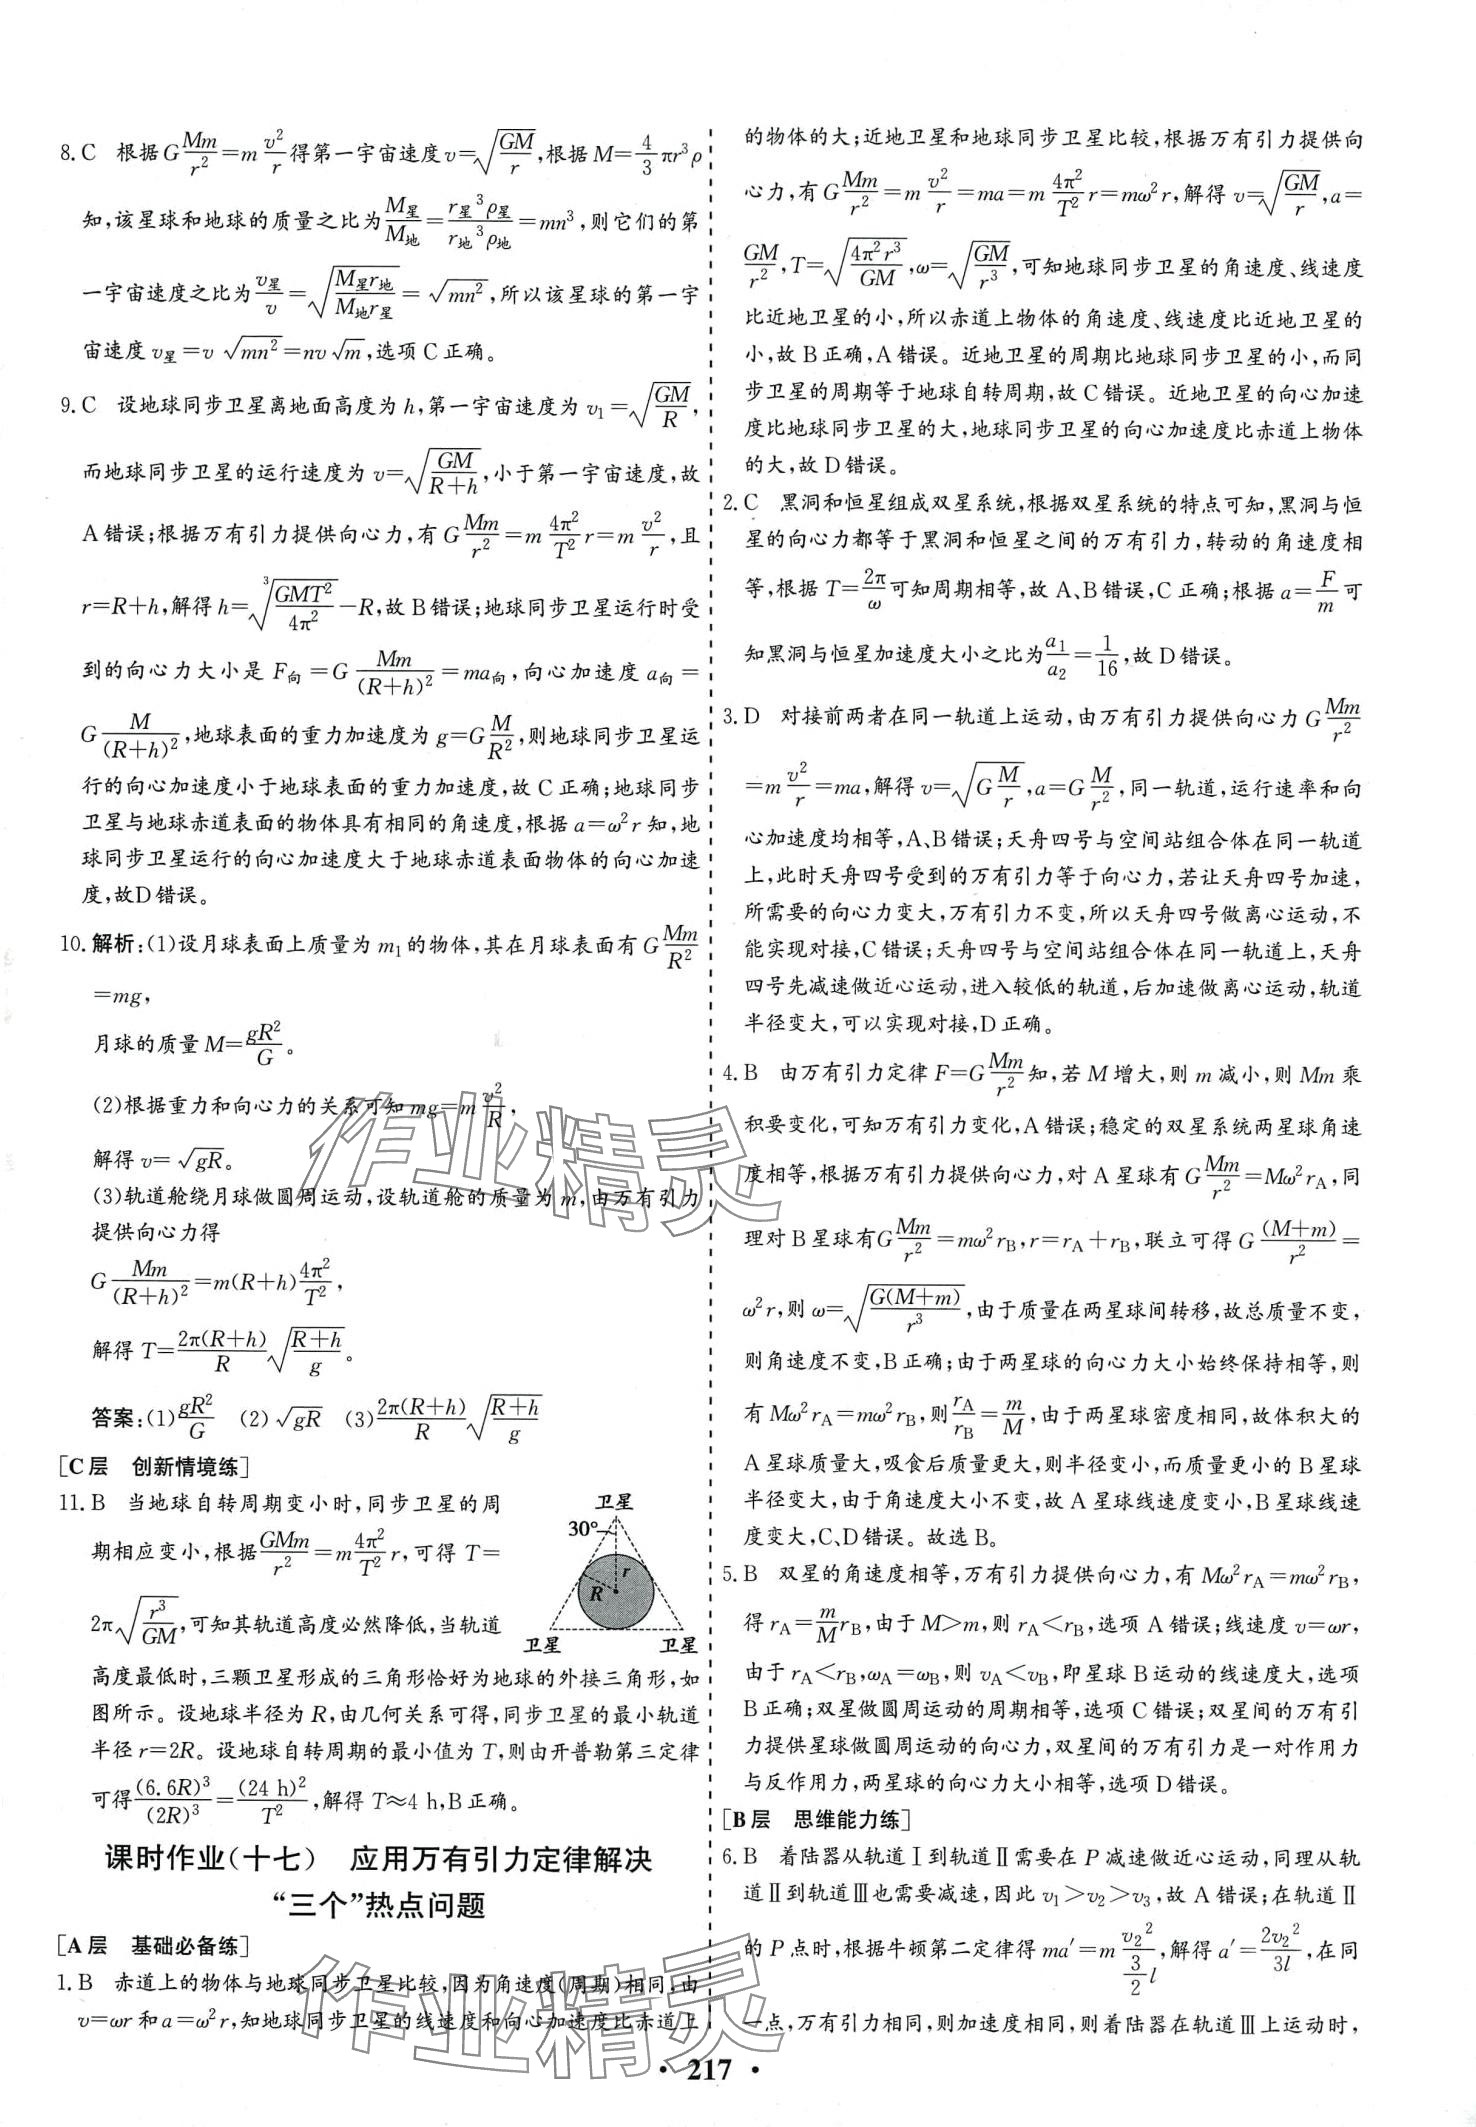 8. C　根据G\frac{Mm}{r^2}=m\frac{v^2}{r}得第一宇宙速度v=\sqrt{\frac{GM}{r}},根据M=\frac{4}{3}πr^3ρ
知,该星球和地球的质量之比为\frac{M_星}{M_地}=\frac{r_星^3ρ_星}{r_地^3ρ_地}=mn^3,则它们的第
一宇宙速度之比为\frac{v_星}{v}=\sqrt{\frac{M_星r_地}{M_地r_星}}=\sqrt{mn^2},所以该星球的第一宇
宙速度v_星=v\sqrt{mn^2}=nv\sqrt{m},选项C正确。
9. C　设地球同步卫星离地面高度为h,第一宇宙速度为v_1=\sqrt{\frac{GM}{R}},
而地球同步卫星的运行速度为v=\sqrt{\frac{GM}{R+h}},小于第一宇宙速度,故
A错误;根据万有引力提供向心力,有G\frac{Mm}{r^2}=m\frac{4π^2}{T^2}r=m\frac{v^2}{r},且
r=R+h,解得h=\sqrt[3]{\frac{GMT^2}{4π^2}}-R,故B错误;地球同步卫星运行时受
到的向心力大小是F_向=G\frac{Mm}{(R+h)^2}=ma_向,向心加速度a_向=
G\frac{M}{(R+h)^2},地球表面的重力加速度为g=G\frac{M}{R^2},则地球同步卫星运
行的向心加速度小于地球表面的重力加速度,故C正确;地球同步
卫星与地球赤道表面的物体具有相同的角速度,根据a=ω^2r知,地
球同步卫星运行的向心加速度大于地球赤道表面物体的向心加速
度,故D错误。
10. 解析:(1)设月球表面上质量为m_1的物体,其在月球表面有G\frac{Mm}{R^2}
=mg,
月球的质量M=\frac{gR^2}{G}。
(2)根据重力和向心力的关系可知mg=m\frac{v^2}{R},
解得v=\sqrt{gR}。
(3)轨道舱绕月球做圆周运动,设轨道舱的质量为m,由万有引力
提供向心力得
G\frac{Mm}{(R+h)^2}=m(R+h)\frac{4π^2}{T^2},
解得T=\frac{2π(R+h)}{R}\sqrt{\frac{R+h}{g}}。
答案:(1)\frac{gR^2}{G}　(2)\sqrt{gR}　(3)\frac{2π(R+h)}{R}\sqrt{\frac{R+h}{g}}
[C层　创新情境练]
11. B　当地球自转周期变小时,同步卫星的周
期相应变小,根据\frac{GMm}{r^2}=m\frac{4π^2}{T^2}r,可得T=
2π\sqrt{\frac{r^3}{GM}},可知其轨道高度必然降低,当轨道
卫星
30°
R
r
卫星　卫星
高度最低时,三颗卫星形成的三角形恰好为地球的外接三角形,如
图所示。设地球半径为R,由几何关系可得,同步卫星的最小轨道
半径r=2R。设地球自转周期的最小值为T,则由开普勒第三定律
可得\frac{(6.6R)^3}{(2R)^3}=\frac{(24 h)^2}{T^2},解得T≈4 h,B正确。
课时作业(十七)　应用万有引力定律解决
“三个”热点问题
[A层　基础必备练]
1. B　赤道上的物体与地球同步卫星比较,因为角速度(周期)相同,由
v=ωr和a=ω^2r,知地球同步卫星的线速度和向心加速度比赤道上
的物体的大;近地卫星和地球同步卫星比较,根据万有引力提供向
心力,有G\frac{Mm}{r^2}=m\frac{v^2}{r}=ma=m\frac{4π^2}{T^2}r=mω^2r,解得v=\sqrt{\frac{GM}{r}},a=
\frac{GM}{r^2},T=\sqrt{\frac{4π^2r^3}{GM}},ω=\sqrt{\frac{GM}{r^3}},可知地球同步卫星的角速度、线速度
比近地卫星的小,所以赤道上物体的角速度、线速度比近地卫星的
小,故B正确,A错误。近地卫星的周期比地球同步卫星的小,而同
步卫星的周期等于地球自转周期,故C错误。近地卫星的向心加速
度比地球同步卫星的大,地球同步卫星的向心加速度比赤道上物体
的大,故D错误。
2. C　黑洞和恒星组成双星系统,根据双星系统的特点可知,黑洞与恒
星的向心力都等于黑洞和恒星之间的万有引力,转动的角速度相
等,根据T=\frac{2π}{ω}可知周期相等,故A、B错误,C正确;根据a=\frac{F}{m}可
知黑洞与恒星加速度大小之比为\frac{a_1}{a_2}=\frac{1}{16},故D错误。
3. D　对接前两者在同一轨道上运动,由万有引力提供向心力G\frac{Mm}{r^2}
=m\frac{v^2}{r}=ma,解得v=\sqrt{G\frac{M}{r}},a=G\frac{M}{r^2},同一轨道,运行速率和向
心加速度均相等,A、B错误;天舟四号与空间站组合体在同一轨道
上,此时天舟四号受到的万有引力等于向心力,若让天舟四号加速,
所需要的向心力变大,万有引力不变,所以天舟四号做离心运动,不
能实现对接,C错误;天舟四号与空间站组合体在同一轨道上,天舟
四号先减速做近心运动,进入较低的轨道,后加速做离心运动,轨道
半径变大,可以实现对接,D正确。
4. B　由万有引力定律F=G\frac{Mm}{r^2}知,若M增大,则m减小,则Mm乘
积要变化,可知万有引力变化,A错误;稳定的双星系统两星球角速
度相等,根据万有引力提供向心力,对A星球有G\frac{Mm}{r^2}=Mω^2r_A,同
理对B星球有G\frac{Mm}{r^2}=mω^2r_B,r=r_A+r_B,联立可得G\frac{(M+m)}{r^2}=
ω^2r,则ω=\sqrt{\frac{G(M+m)}{r^3}},由于质量在两星球间转移,故总质量不变,
则角速度不变,B正确;由于两星球的向心力大小始终保持相等,则
有Mω^2r_A=mω^2r_B,则\frac{r_A}{r_B}=\frac{m}{M},由于两星球密度相同,故体积大的
A星球质量大,吸食后质量更大,则半径变小,而质量更小的B星球
半径变大,由于角速度大小不变,故A星球线速度变小,B星球线速
度变大,C、D错误。故选B。
5. B　双星的角速度相等,万有引力提供向心力,有Mω^2r_A=mω^2r_B,
得r_A=\frac{m}{M}r_B,由于M>m,则r_A<r_B,选项A错误;线速度v=ωr,
由于r_A<r_B,ω_A=ω_B,则v_A<v_B,即星球B运动的线速度大,选项
B正确;双星做圆周运动的周期相等,选项C错误;双星间的万有引
力提供星球做圆周运动的向心力,双星间的万有引力是一对作用力
与反作用力,两星球的向心力大小相等,选项D错误。
[B层　思维能力练]
6. B　着陆器从轨道Ⅰ到轨道Ⅱ需要在P减速做近心运动,同理从轨
道Ⅱ到轨道Ⅲ也需要减速,因此v_1>v_2>v_3,故A错误;在轨道Ⅱ
的P点时,根据牛顿第二定律得ma'=m\frac{v_2^2}{\frac{3}{2}l},解得a'=\frac{2v_2^2}{3l},在同
一点,万有引力相同,则加速度相同,则着陆器在轨道Ⅲ上运动时,
• 217 •
作业精灵
作业精灵